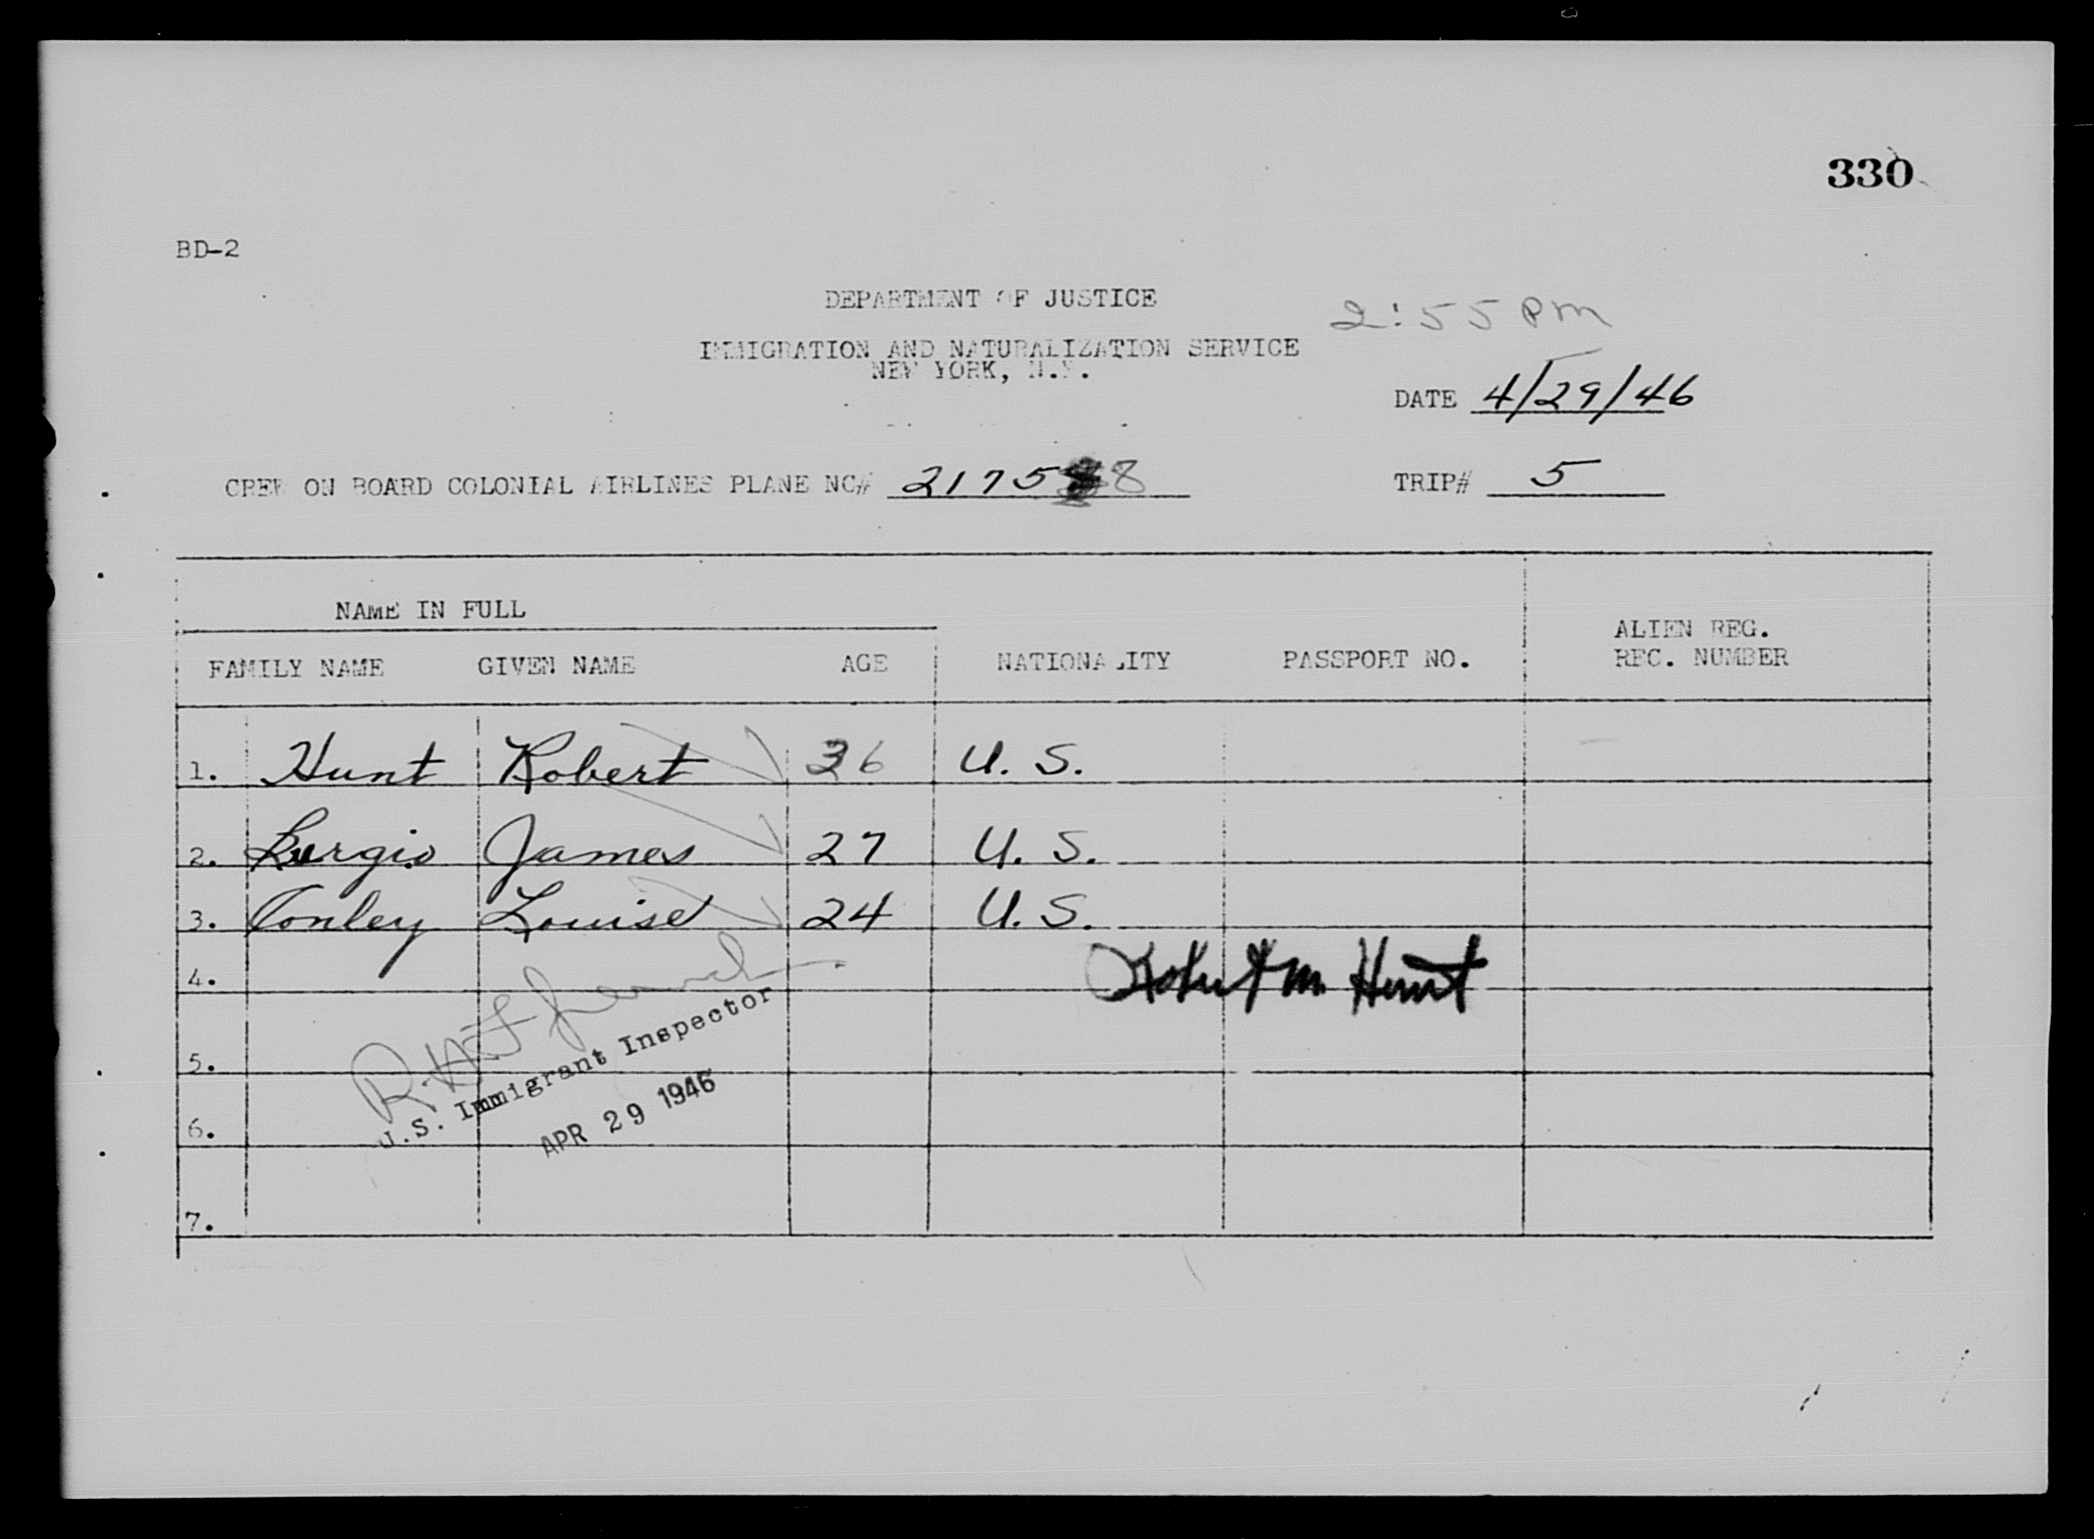 330
BD-2
DEPARTMENT OF JUSTICE
2:55 PM
IMMIGRATION AND NATURALIZATION SERVICE
NEW YORK, N.Y.
DATE 4/29/46
CREW ON BOARD COLONIAL AIRLINES PLANE NC# 2175 8
TRIP# 5
NAME IN FULL
FAMILY NAME GIVEN NAME AGE NATIONALITY PASSPORT NO. ALIEN REG.
REC. NUMBER
1. Hunt Robert 36 U. S.
2. Burgio James 27 U. S.
3. Conley Louise 24 U. S.
4. Robert M. Hunt
5.
U.S. Immigrant Inspector
6.
APR 29 1946
7.